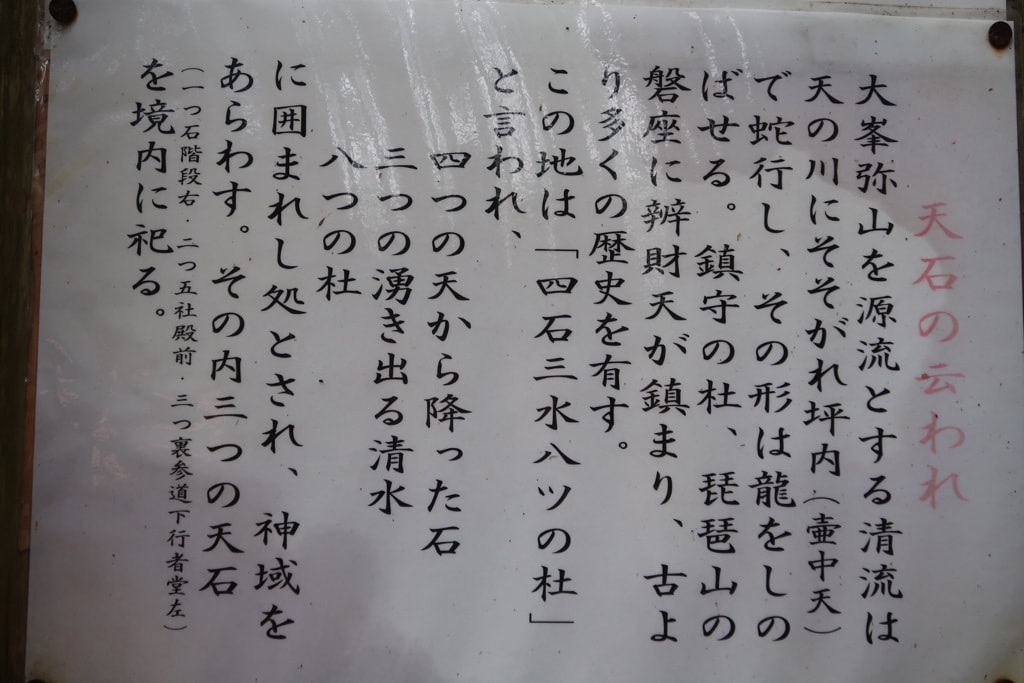 天石の云われ
大峯弥山を源流とする清流は
天の川にそそがれ坪内（壷中天）
で蛇行し、その形は龍をしの
ばせる。鎮守の杜、琵琶山の
磐座に辨財天が鎮まり、古よ
り多くの歴史を有す。
この地は「四石三水八ツの杜」
と言われ、
四つの天から降った石
三つの湧き出る清水
八つの杜
に囲まれし処とされ、神域を
あらわす。その内三つの天石
（一つ石階段右．二つ五社殿前．三つ裏参道下行者堂左）
を境内に祀る。